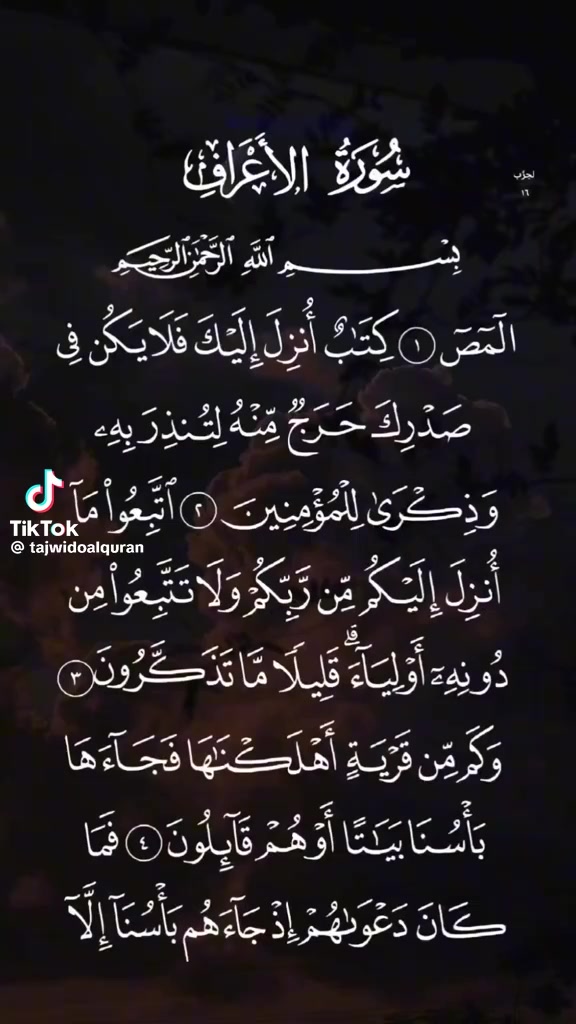 سُورَةُ الأَعْرَافِ
الحزب
١٦
بِسْمِ ٱللَّهِ ٱلرَّحْمَٰنِ ٱلرَّحِيمِ
الٓمٓصٓ ١ كِتَٰبٌ أُنزِلَ إِلَيْكَ فَلَا يَكُن فِى
صَدْرِكَ حَرَجٌ مِّنْهُ لِتُنذِرَ بِهِۦ
وَذِكْرَىٰ لِلْمُؤْمِنِينَ ٢ ٱتَّبِعُوا۟ مَآ
أُنزِلَ إِلَيْكُم مِّن رَّبِّكُمْ وَلَا تَتَّبِعُوا۟ مِن
دُونِهِۦٓ أَوْلِيَآءَ ۗ قَلِيلًا مَّا تَذَكَّرُونَ ٣
وَكَم مِّن قَرْيَةٍ أَهْلَكْنَٰهَا فَجَآءَهَا
بَأْسُنَا بَيَٰتًا أَوْ هُمْ قَآئِلُونَ ٤ فَمَا
كَانَ دَعْوَىٰهُمْ إِذْ جَآءَهُم بَأْسُنَآ إِلَّآ
TikTok
@ tajwidoalquran